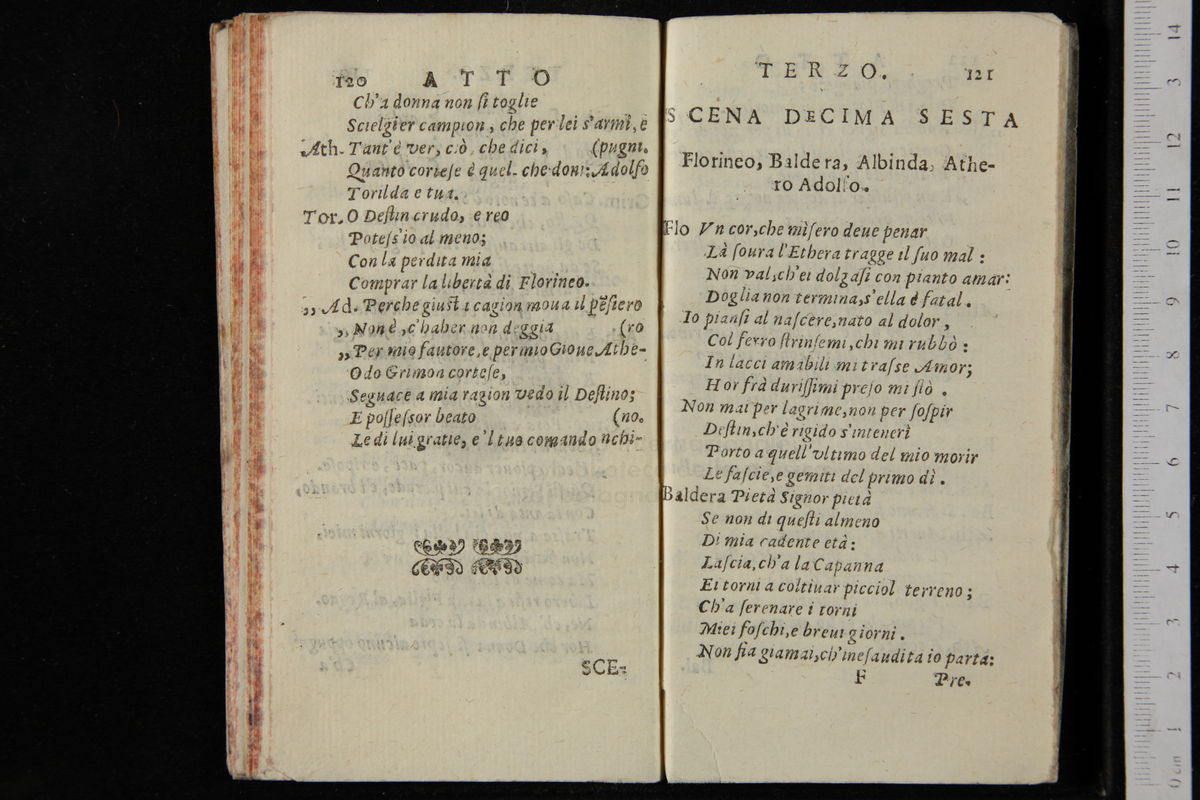 120 ATTO
Ch'a donna non ſi toglie
Scielgier campion, che per lei s'armi, e
Ath. Tant'è ver, ciò, che dici, (pugni.
Quanto corteſe è quel che doni: Adolfo
Torilda e tua.
Tor. O Deſtin crudo, e reo
Poteſs'io al meno;
Con la perdita mia
Comprar la libertà di Florineo.
,, Ad. Perche giuſta cagion moua il pẽſiero
,, Non è, c'haber non deggia (ro
,, Per mio fautore, e per mio Gioue Athe-
O do Grimon corteſe,
Seguace a mia ragion vedo il Deſtino;
E poſſeſsor beato (no.
Le di lui gratie, e'l tuo comando nchi-
SCE-
TERZO. 121
SCENA DECIMA SESTA
Florineo, Baldera, Albinda, Athe-
ro Adolfo.
Flo Vn cor, che miſero deue penar
Là ſoura l'Ethera tragge il ſuo mal :
Non val, ch'ei dolgaſi con pianto amar:
Doglia non termina, s'ella è fatal.
Io pianſi al naſcere, nato al dolor,
Col ferro ſtrinſemi, chi mi rubbò :
In lacci amabili mi traſse Amor;
Hor frà duriſſimi preſo mi ſtò.
Non mai per lagrime, non per ſoſpir
Deſtin, ch'è rigido s'intenerì
Porto a quell'vltimo del mio morir
Le faſcie, e gemiti del primo dì.
Baldera Pietà Signor pietà
Se non di queſti almeno
Di mia cadente età:
Laſcia, ch'a la Capanna
Ei torni a coltiuar picciol terreno;
Ch'a ſerenare i torni
Miei foſchi, e breui giorni.
Non fia giamai, ch'ineſaudita io parta:
F Pre.